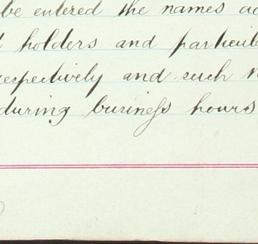 be entered the names a
holders and particul
respectively and such
during business hours